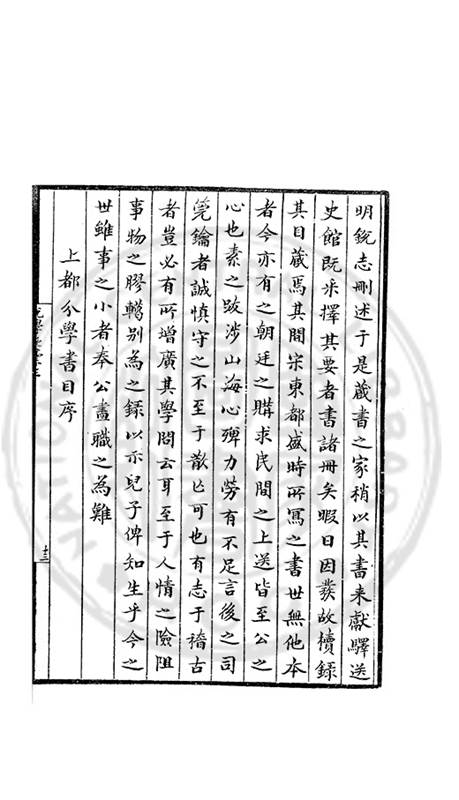 明銳志刪述于是藏書之家稍以其書来獻驛送
史館既采擇其要者書諸冊矣暇日因發故櫝録
其目藏焉其間宋東都盛時所寫之書世無他本
者今亦有之朝廷之購求民間之上送皆至公之
心也素之跋涉山海心殫力勞有不足言後之司
筦鑰者誠慎守之不至于散亡可也有志于稽古
者豈必有所增廣其學問云耳至于人情之險阻
事物之膠轕别為之録以示兒子俾知生乎今之
世雖事之小者奉公盡職之為難
上都分學書目序
十三